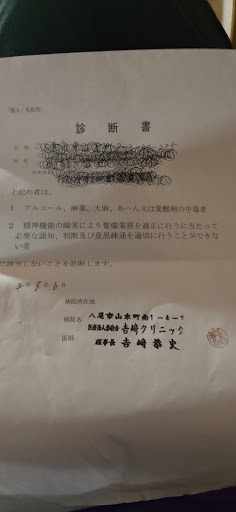 診断書
上記の者は、
1 アルコール、麻薬、大麻、あへん又は覚醒剤の中毒者
2 精神機能の障害により警備業務を適正に行うに当たって
必要な認知、判断及び意思疎通を適切に行うことができな
い者
に該当しないことを診断します。
病院所在地
八尾市山本町南1-6-
病院名
吉崎クリニック
医師
理事長 吉崎恭史